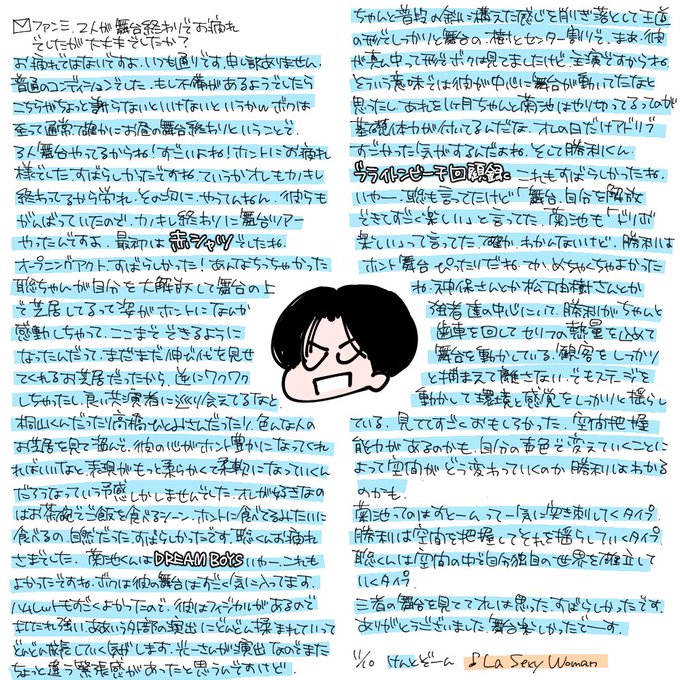 ファンミ、2人が舞台終わりでお疲れ
でしたが大丈夫でしたか?
お疲れではないですよ。いつも通りです、申し訳ありません。
普通のコンディションでした。もし不備があるようでしたら
こちらがちょっと謝らないといけないというか。ボクは
至って通常で確かにお昼の舞台終わりということで。
3人舞台やってるからね!すごいよね!ホントにお疲れ
様でした。すばらしかったですね。ていうかオレもカノキレ
終わってるから労れ、その次に。やってんねん。彼らも
がんばっていたので、カノキレ終わりに舞台ツアー
やったんですよ。最初は赤シャツでしたね。
オープニングアクト、すばらしかった!あんなちっちゃかった
聡ちゃんが自分を大解放して舞台の上
で芝居してるって姿がホントになんか
感動しちゃって。ここまでできるように
なったんだって。まだまだ伸び代を見せ
てくれるお芝居だったから、逆にワクワク
しちゃったし、良い共演者に巡り会えてるなと。
桐山くんだったり高橋ひとみさんだったり、色んな人の
お芝居を見て学んで、彼の心がホント豊かになってくれ
ればいいなと。表現がもっと柔らかくて柔軟になっていくん
だろうなっていう予感しかしませんでした。オレが好きなの
はお茶碗でご飯を食べるシーン。ホントに食べてるみたいに
食べるの。自然だった。すばらしかったです聡くんお疲れ
さまでした。菊池くんはDREAM BOYSいやー、これも
よかったですね。ボクは彼の舞台はすごく気に入ってます。
ハムレットもすごくよかったので、彼はフィジカルがあるので
打たれ強い。ああいう外部の演出にどんどん揉まれていって
どんどん成長していく気がします。光一さんが演出なのでまた
ちょっと違う緊張感があったと思うんですけど。
ちゃんと普段の斜に構えた感じを削ぎ落として王道
の形でしっかりと舞台の、樹とセンター割りで。まあ、彼
が真ん中って形でボクは見てましたけど。主演ですからね。
そういう意味では彼が中心に舞台が動いてたなと
思ったし、あれを1ヶ月ちゃんと菊池はやり切ってるってのが
基礎体力が付いてるんだな。オレの日だけアドリブ
すごかった気がするんだよね。そして勝利くん。
ブライトン・ビーチ回顧録。これもすばらしかったね。
いやー、聡も言ってたけど「舞台、自分を解放
できてすごく楽しい」と言ってた。菊池も「ドリボ
楽しい」って言ってた。確か。わかんないけど。勝利は
ホント舞台ぴったりだね。てか、めちゃんちゃよかった
ね。神保さんとか松下由樹さんとか
強者達の中心にいて、勝利がちゃんと
歯車を回してセリフの熱量を込めて
舞台を動かしている。観客をしっかり
と捕まえて離さない。でもステージを
動かして環境と感覚をしっかりと揺らし
ている。見ててすごくおもしろかった。空間把握
能力があるのかも。自分の声色で変えていくことに
よって空間がどう変わっていくのか勝利はわかる
のかも。
菊池ってのはすとーんって一気に突き刺してくタイプ。
勝利は空間を把握してそれを揺らしていくタイプ。
聡くんは空間の中で自分独自の世界を確立して
いくタイプ。
三者の舞台を見てオレは思った。すばらしかったです。
ありがとうございました。舞台楽しかったでーす。
11/10 けんとぞーん ♪La Sexy Woman